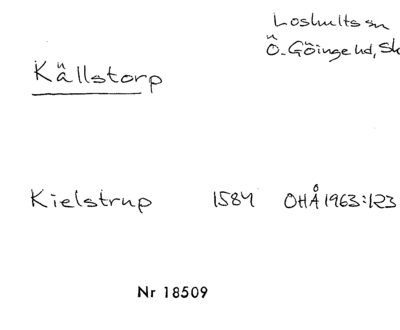 Loshults sn
Ö. Göinge hd, Sk
Källstorp
Kielstrup 1584 OHÅ 1963:123
Nr 18509